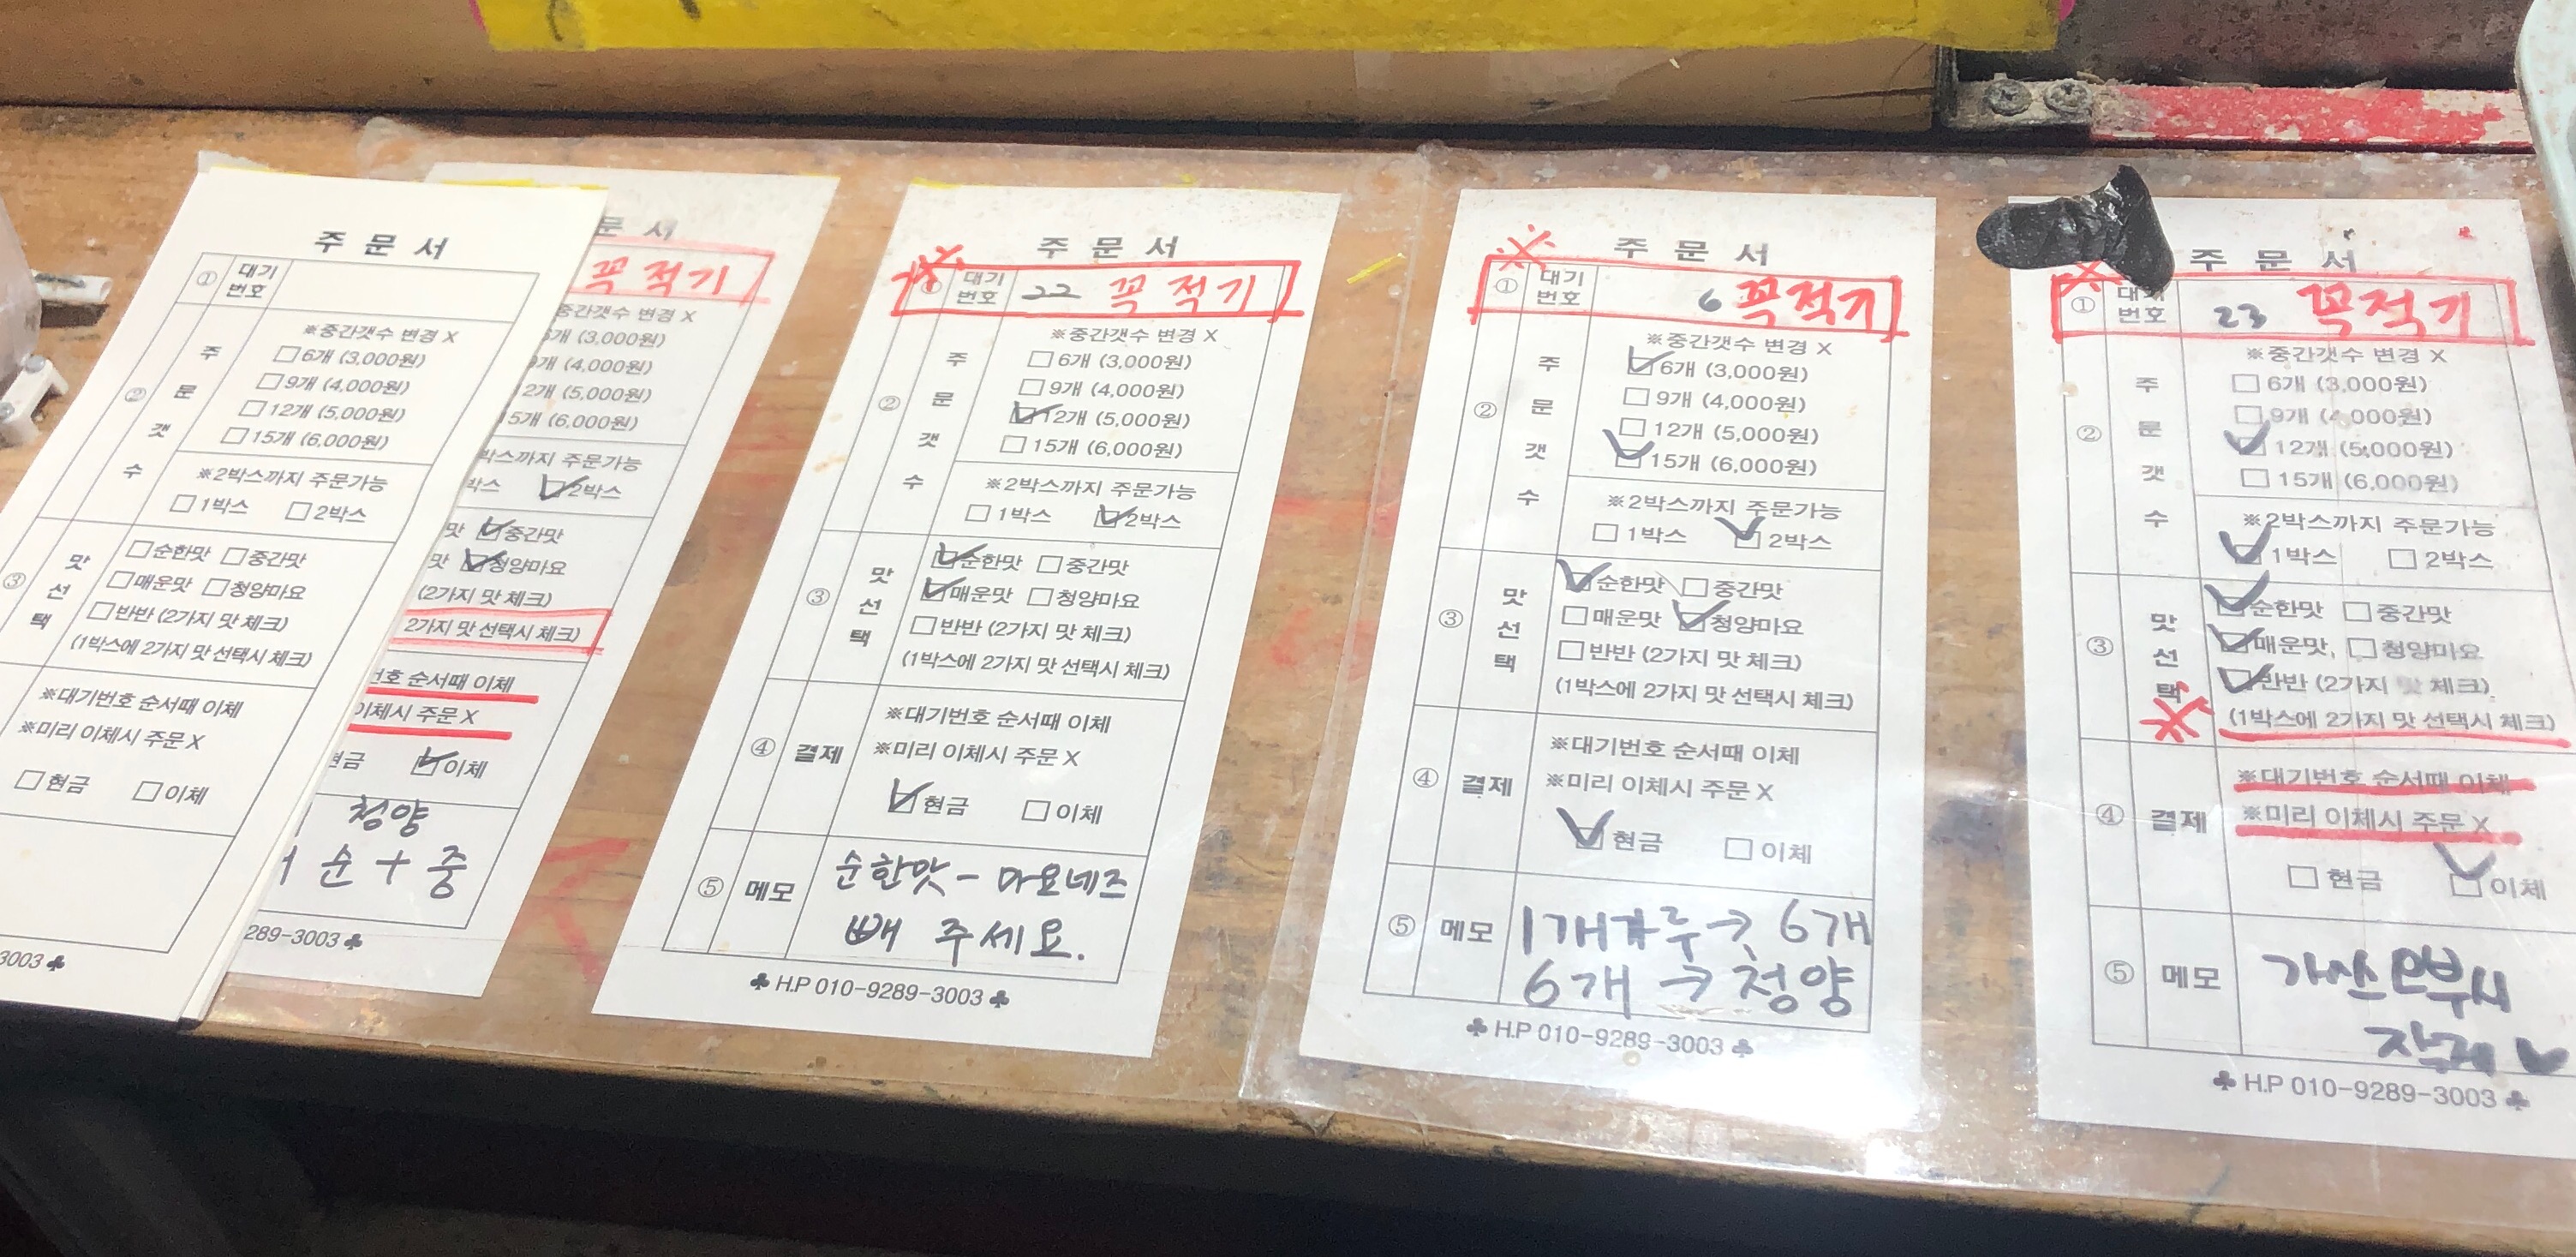 주 문 서
① 대기
번호
② 주 문 갯 수
※중간갯수 변경 X
□6개 (3,000원)
□9개 (4,000원)
□12개 (5,000원)
□15개 (6,000원)
※2박스까지 주문가능
□1박스 □2박스
③ 맛 선 택
□순한맛 □중간맛
□매운맛 □청양마요
□반반 (2가지 맛 체크)
(1박스에 2가지 맛 선택시 체크)
※대기번호 순서때 이체
※미리 이체시 주문 X
□현금 □이체
3003 ♣
문 서
꼭 적기
중간갯수 변경 X
6개 (3,000원)
9개 (4,000원)
2개 (5,000원)
15개 (6,000원)
박스까지 주문가능
박스 ☑2박스
맛 ☑중간맛
맛 ☑청양마요
(2가지 맛 체크)
2가지 맛 선택시 체크)
번호 순서때 이체
이체시 주문 X
현금 ☑이체
청양
순 + 중
289-3003 ♣
주 문 서
※
① 대기
번호 22 꼭 적기
② 주 문 갯 수
※중간갯수 변경 X
□6개 (3,000원)
□9개 (4,000원)
☑12개 (5,000원)
□15개 (6,000원)
※2박스까지 주문가능
□1박스 ☑2박스
③ 맛 선 택
☑순한맛 □중간맛
☑매운맛 □청양마요
□반반 (2가지 맛 체크)
(1박스에 2가지 맛 선택시 체크)
④ 결제
※대기번호 순서때 이체
※미리 이체시 주문 X
☑현금 □이체
⑤ 메모
순한맛 - 마요네즈
빼 주세요.
♣ H.P 010-9289-3003 ♣
주 문 서
※
① 대기
번호 6 꼭적기
② 주 문 갯 수
※중간갯수 변경 X
☑6개 (3,000원)
□9개 (4,000원)
□12개 (5,000원)
☑15개 (6,000원)
※2박스까지 주문가능
□1박스 ☑2박스
③ 맛 선 택
☑순한맛 □중간맛
□매운맛 ☑청양마요
□반반 (2가지 맛 체크)
(1박스에 2가지 맛 선택시 체크)
④ 결제
※대기번호 순서때 이체
※미리 이체시 주문 X
☑현금 □이체
⑤ 메모
1개가루→ 6개
6개 → 청양
♣ H.P 010-9289-3003 ♣
주 문 서
※
① 대기
번호 23 꼭적기
② 주 문 갯 수
※중간갯수 변경 X
□6개 (3,000원)
□9개 (4,000원)
☑12개 (5,000원)
□15개 (6,000원)
※2박스까지 주문가능
☑1박스 □2박스
③ 맛 선 택
※
☑순한맛 □중간맛
☑매운맛, □청양마요
☑반반 (2가지 맛 체크)
(1박스에 2가지 맛 선택시 체크)
④ 결제
※대기번호 순서때 이체
※미리 이체시 주문 X
□현금 ☑이체
⑤ 메모
♣ H.P 010-9289-3003 ♣